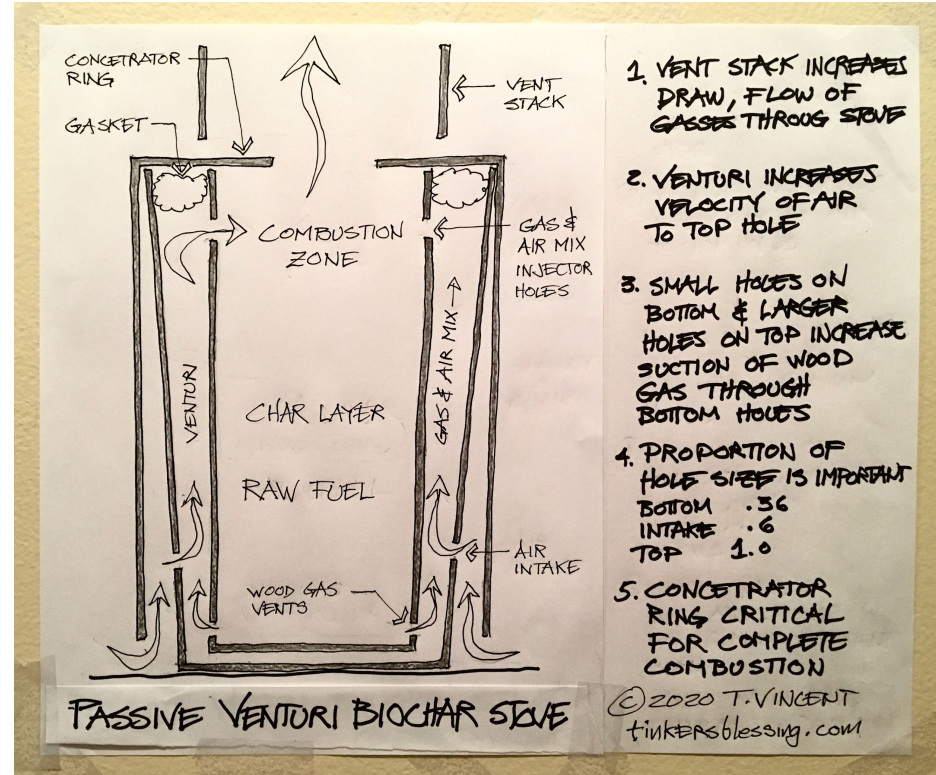 CONCETRATOR
RING
GASKET
VENT
STACK
COMBUSTION
ZONE
GAS &
AIR MIX
INJECTOR
HOLES
VENTURI
GAS & AIR MIX
CHAR LAYER
RAW FUEL
AIR
INTAKE
WOOD GAS
VENTS
PASSIVE VENTURI BIOCHAR STOVE
1. VENT STACK INCREASES
DRAW, FLOW OF
GASSES THROUG STOVE
2. VENTURI INCREASES
VELOCITY OF AIR
TO TOP HOLE
3. SMALL HOLES ON
BOTTOM & LARGER
HOLES ON TOP INCREASE
SUCTION OF WOOD
GAS THROUGH
BOTTOM HOLES
4. PROPORTION OF
HOLE SIZE IS IMPORTANT
BOTTOM .36
INTAKE .6
TOP 1.0
5. CONCETRATOR
RING CRITICAL
FOR COMPLETE
COMBUSTION
© 2020 T. VINCENT
tinkersblessing.com